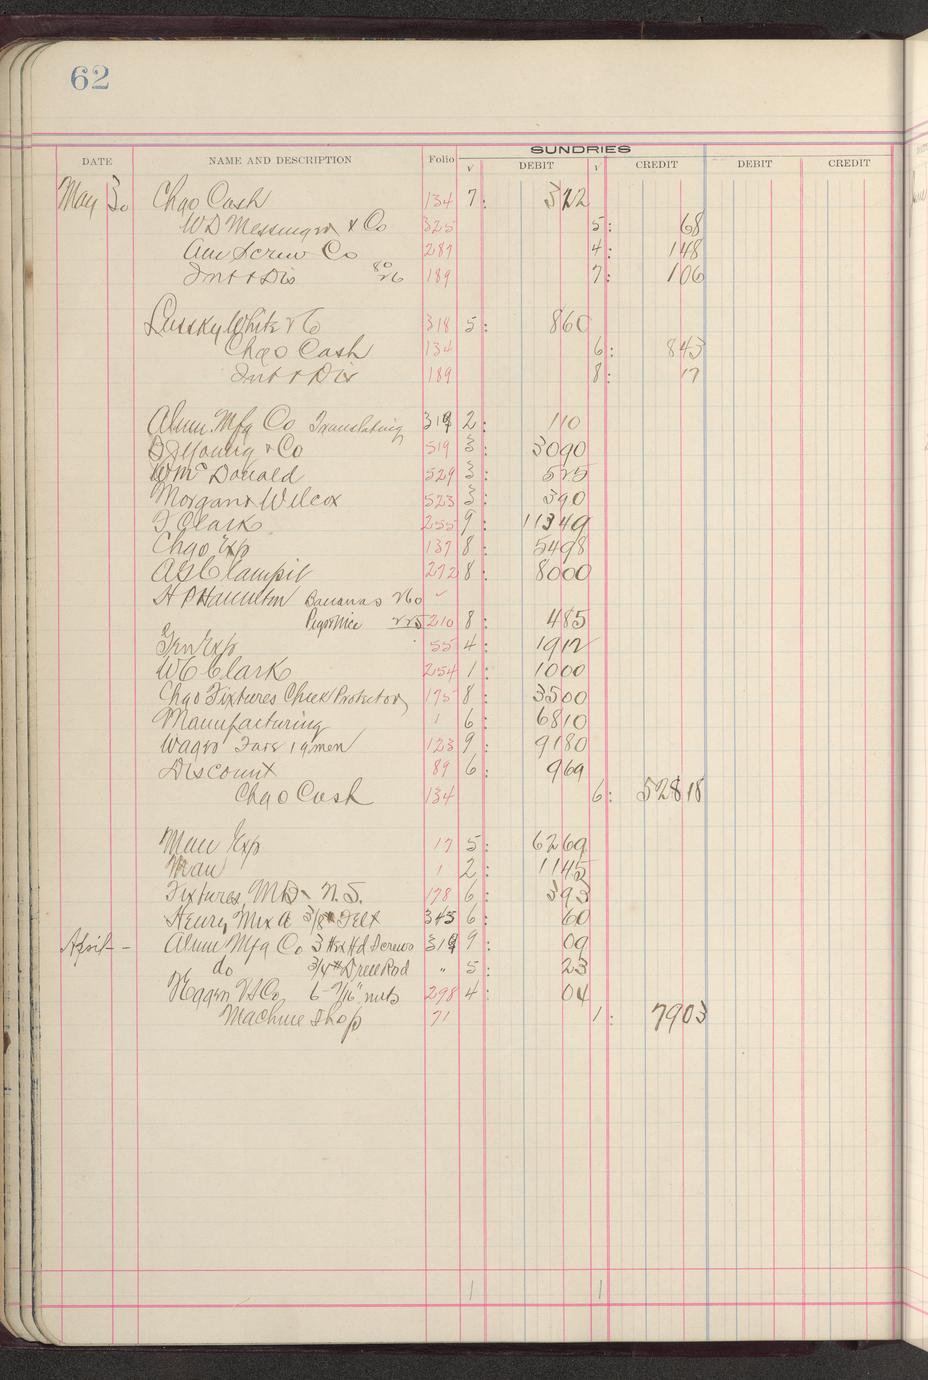 62
SUNDRIES
DATE NAME AND DESCRIPTION Folio √ DEBIT √ CREDIT DEBIT CREDIT
May 30 Chgo Cash 134 7: 3 22
W D Messinger & Co 325 5: 68
Am Screw Co 287 4: 1 48
Int & Dis 80 26 189 7: 1 06
Lussky White & Co 318 5: 8 60
Chgo Cash 134 6: 8 43
Int & Dis 189 8: 17
Alum. Mfg Co Translating 319 2: 1 10
Young & Co 519 3: 30 90
W Mc Donald 529 3: 5 25
Morgan & Wilcox 523 3: 3 90
F Clark 255 9: 113 49
Chgo Exp 137 8: 54 98
A G Clampit 272 8: 80 00
H P Hamilton Bananas 260 ✓
225 210 8: 4 85
Gen Exp 55 4: 19 12
W C Clark 254 1: 10 00
Chgo Fixtures Check Protector 175 8: 35 00
Manufacturing 1 6: 68 10
Wages Fars 19 men 123 9: 91 80
Discount 89 6: 9 69
Chgo Cash 134 6: 528 18
Man Exp 17 5: 62 69
Man 1 2: 11 45
Fixtures, M D - N. S. 178 6: 3 93
Henry Mix a 3/8 # Felt 345 6: 60
April - - Alum Mfg Co 3 Hex Hd Screws 319 9: 09
do 3/4 # Drill Rod " 5: 23
Co 6 - 7/16" nuts 298 4: 04
Machine Shop 71 1: 79 03
1 1